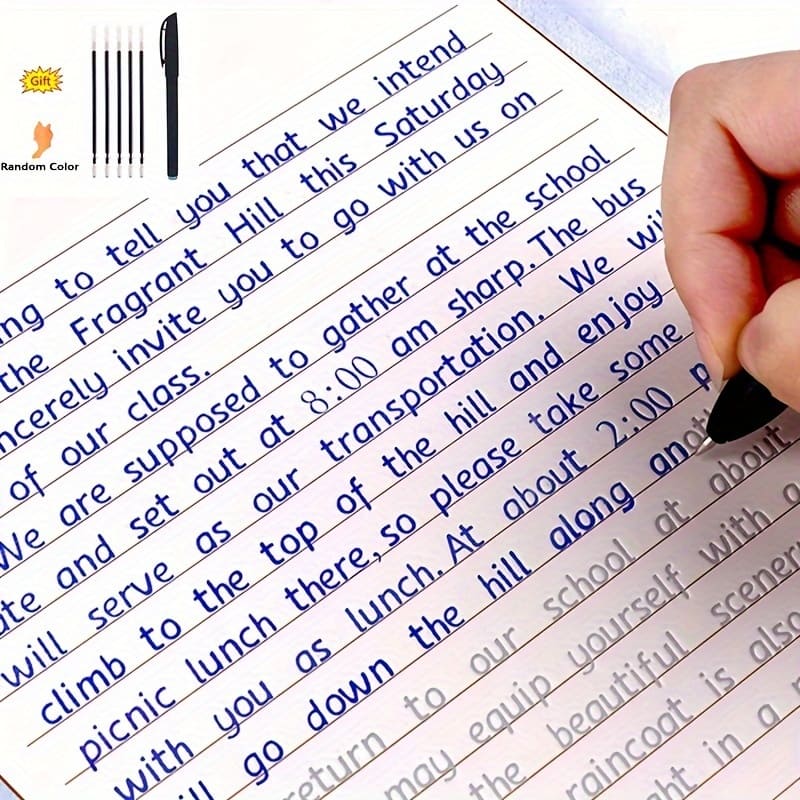 Gift
Random Color
ng to tell you that we intend
the Fragrant Hill this Saturday
ncerely invite you to go with us on
of our class.
We are supposed to gather at the school
ate and set out at 8:00 am sharp.The bus
will serve as our transportation. We wil
climb to the top of the hill and enjoy
picnic lunch there,so please take some
with you as lunch.At about 2:00 p
ill go down the hill along anoth
return to our school at about
may equip yourself with a
the beautiful scener
raincoat is also
ht in a